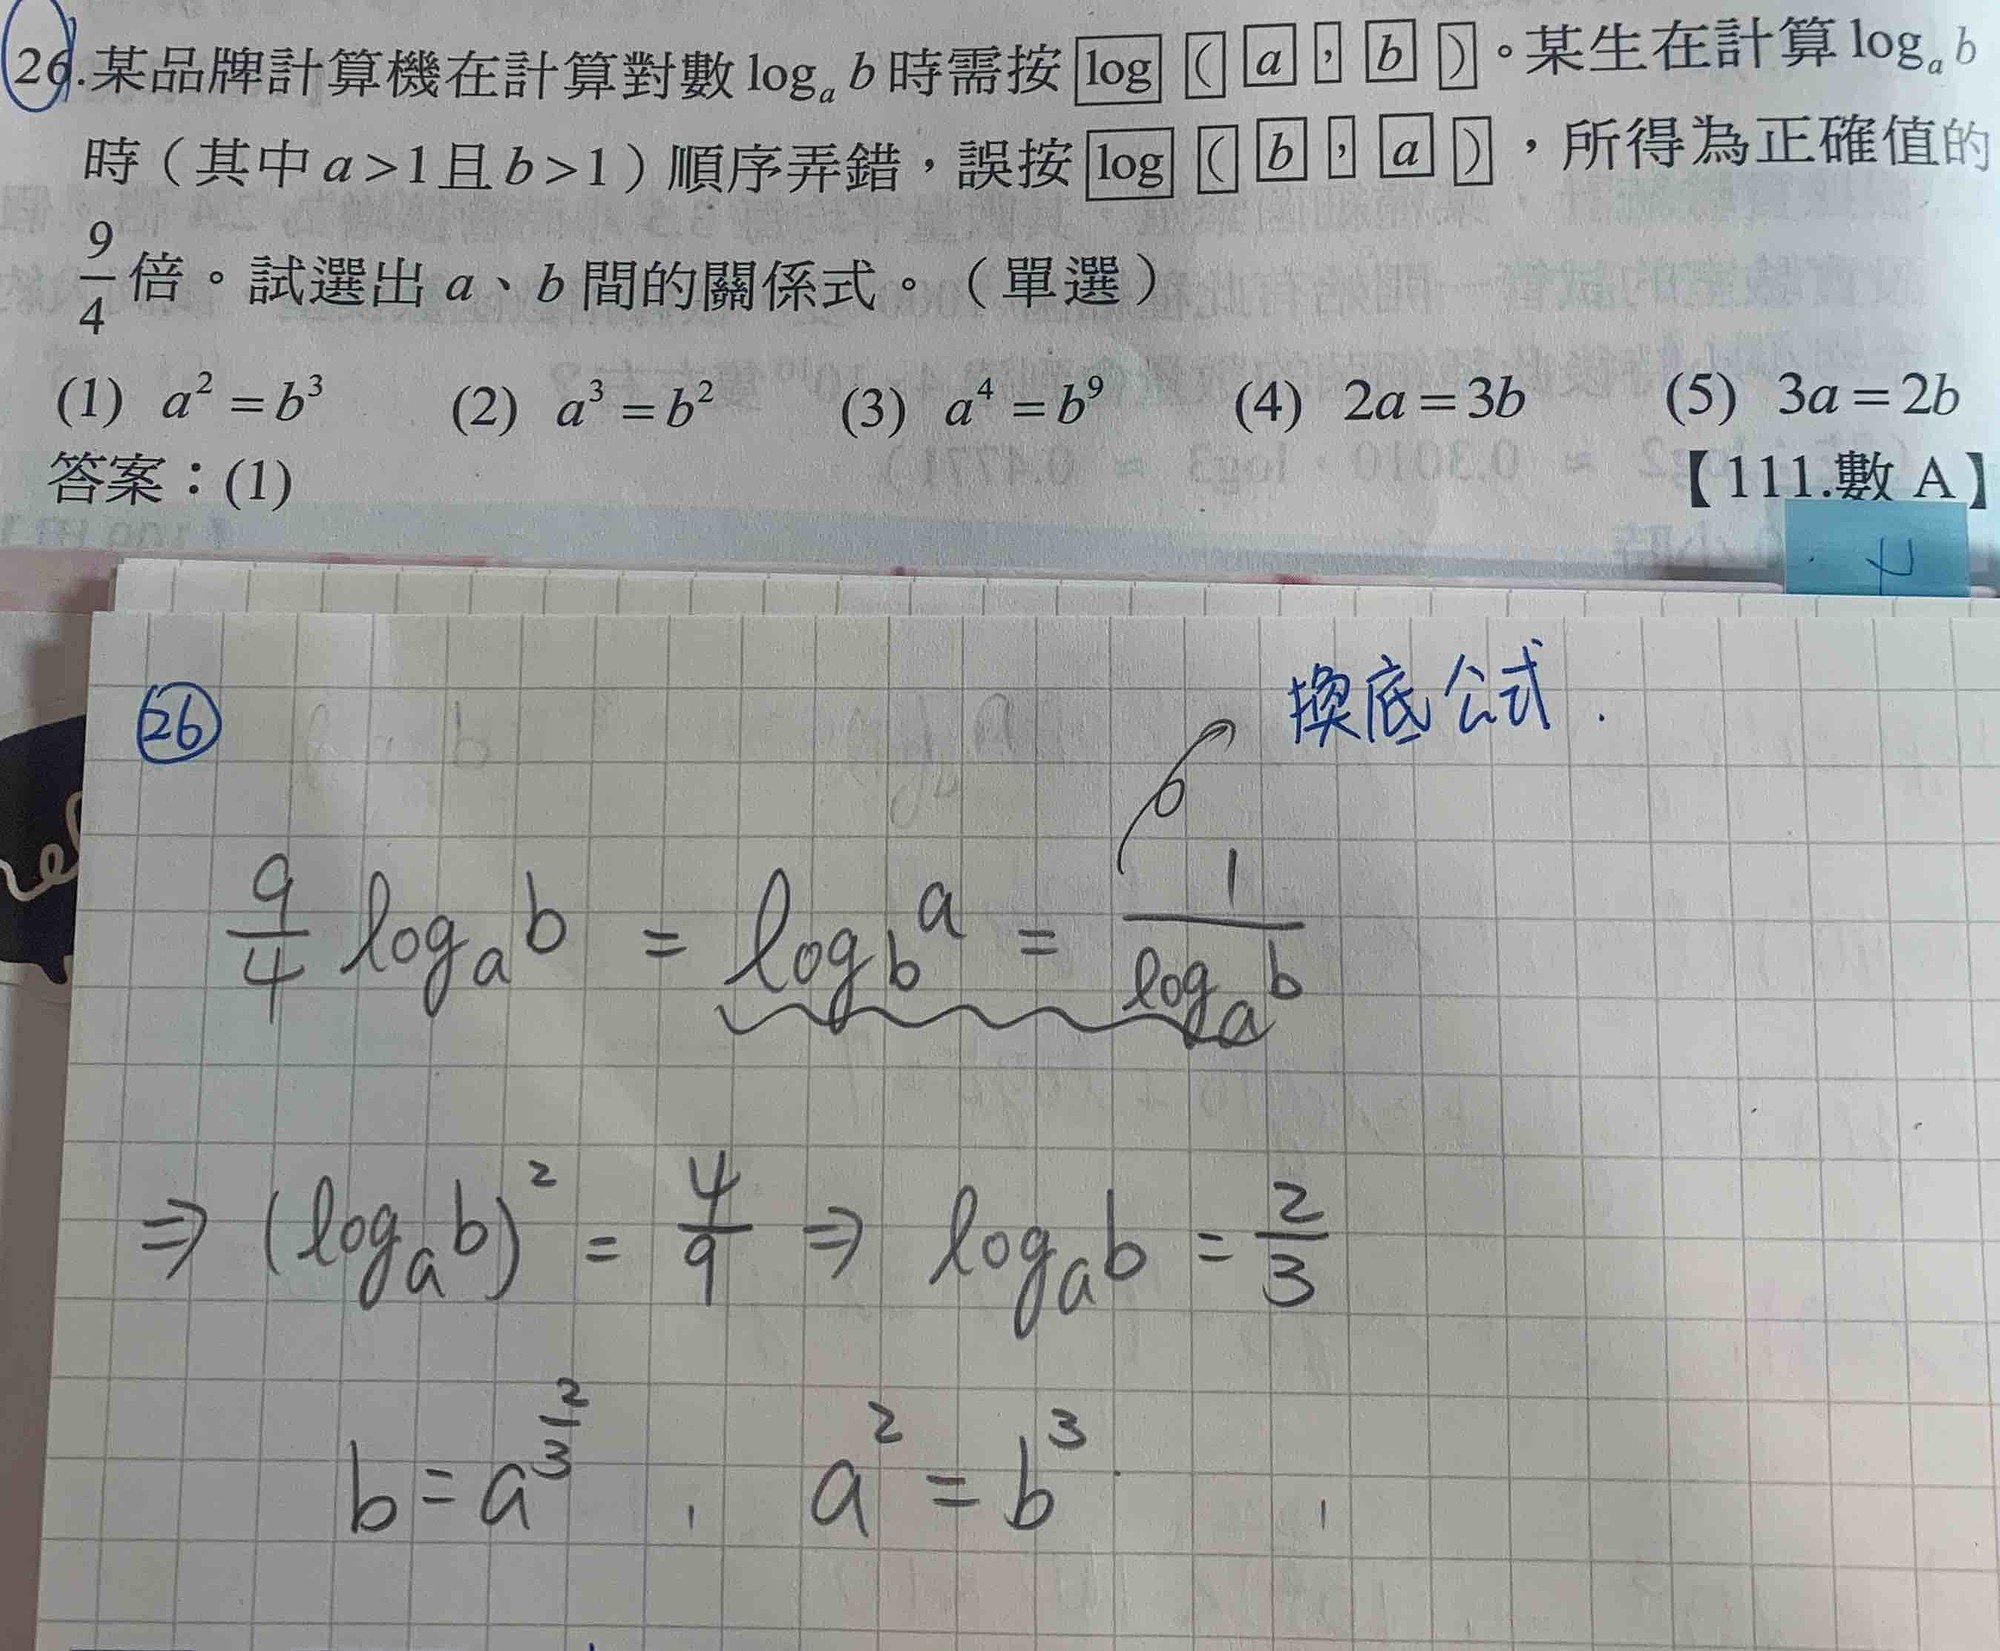 26.某品牌計算機在計算對數 logₐ b 時需按 log ( a , b )。某生在計算 logₐ b
時（其中 a>1 且 b>1）順序弄錯，誤按 log ( b , a )，所得為正確值的
9/4 倍。試選出 a、b 間的關係式。（單選）
(1) a² = b³ (2) a³ = b² (3) a⁴ = b⁹ (4) 2a = 3b (5) 3a = 2b
答案：(1) 【111.數 A】
26 換底公式.
9/4 logₐ b = log_b a = 1/(logₐ b)
⇒ (logₐ b)² = 4/9 ⇒ logₐ b = 2/3
b = a^(2/3) , a² = b³